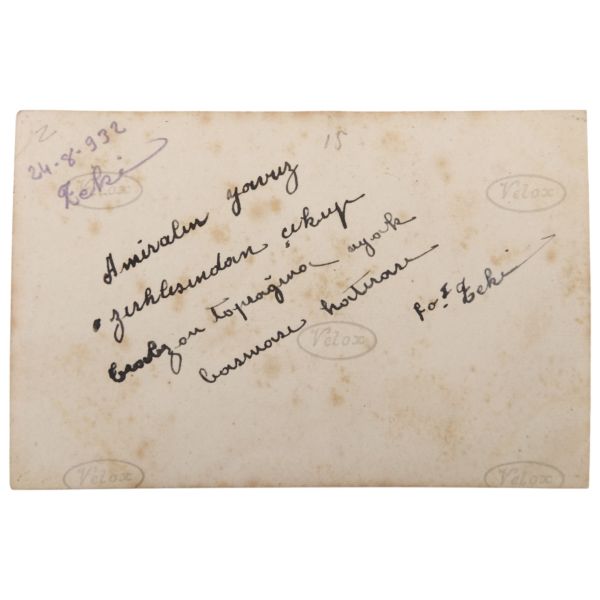 2
24-8-932
Zeki
15
Amiralın yavuz
zırhlısından çıkup
trabzon toprağına ayak
basması hatırası
fot Zeki
Velox
Velox
Velox
Velox
Velox